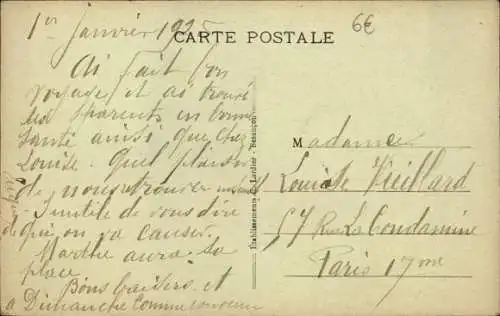 1er janvier 1925
6€
CARTE POSTALE
Ai fait bon
voyage et ai trouvé
les parents en bonne
santé ainsi que chez
Louise. Quel plaisir
de nous retrouver
Inutile de vous dire
que on va causer.
Marthe aura sa
place
Bons baisers et
à Dimanche comme convenu
Etablissements C. Lardier - Besançon
Madame
Louise Vieillard
57 Rue La Condamine
Paris 17me